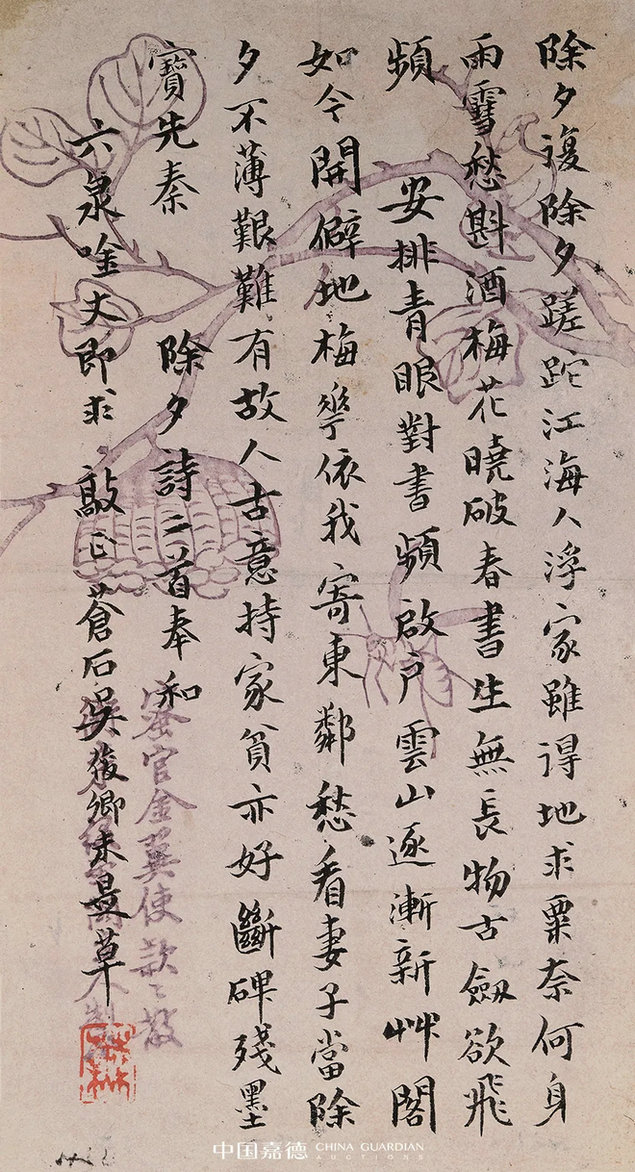 除夕復除夕蹉跎江海人浮家雖得地求粟奈何身
雨雪愁斟酒梅花曉破春書生無長物古劔欲飛
頻　安排青眼對書頻啟戶雲山逐漸新艸閣
如今開僻地梅㝵依我寄東鄰愁看妻子當除
夕不薄艱難有故人古意持家貧亦好斷碑殘墨
寶先秦　除夕詩二首奉和
六泉唫丈即求　敲正蒼石吳俊卿未是草
蜜官金翼使款之放
中国嘉德 CHINA GUARDIAN
AUCTIONS